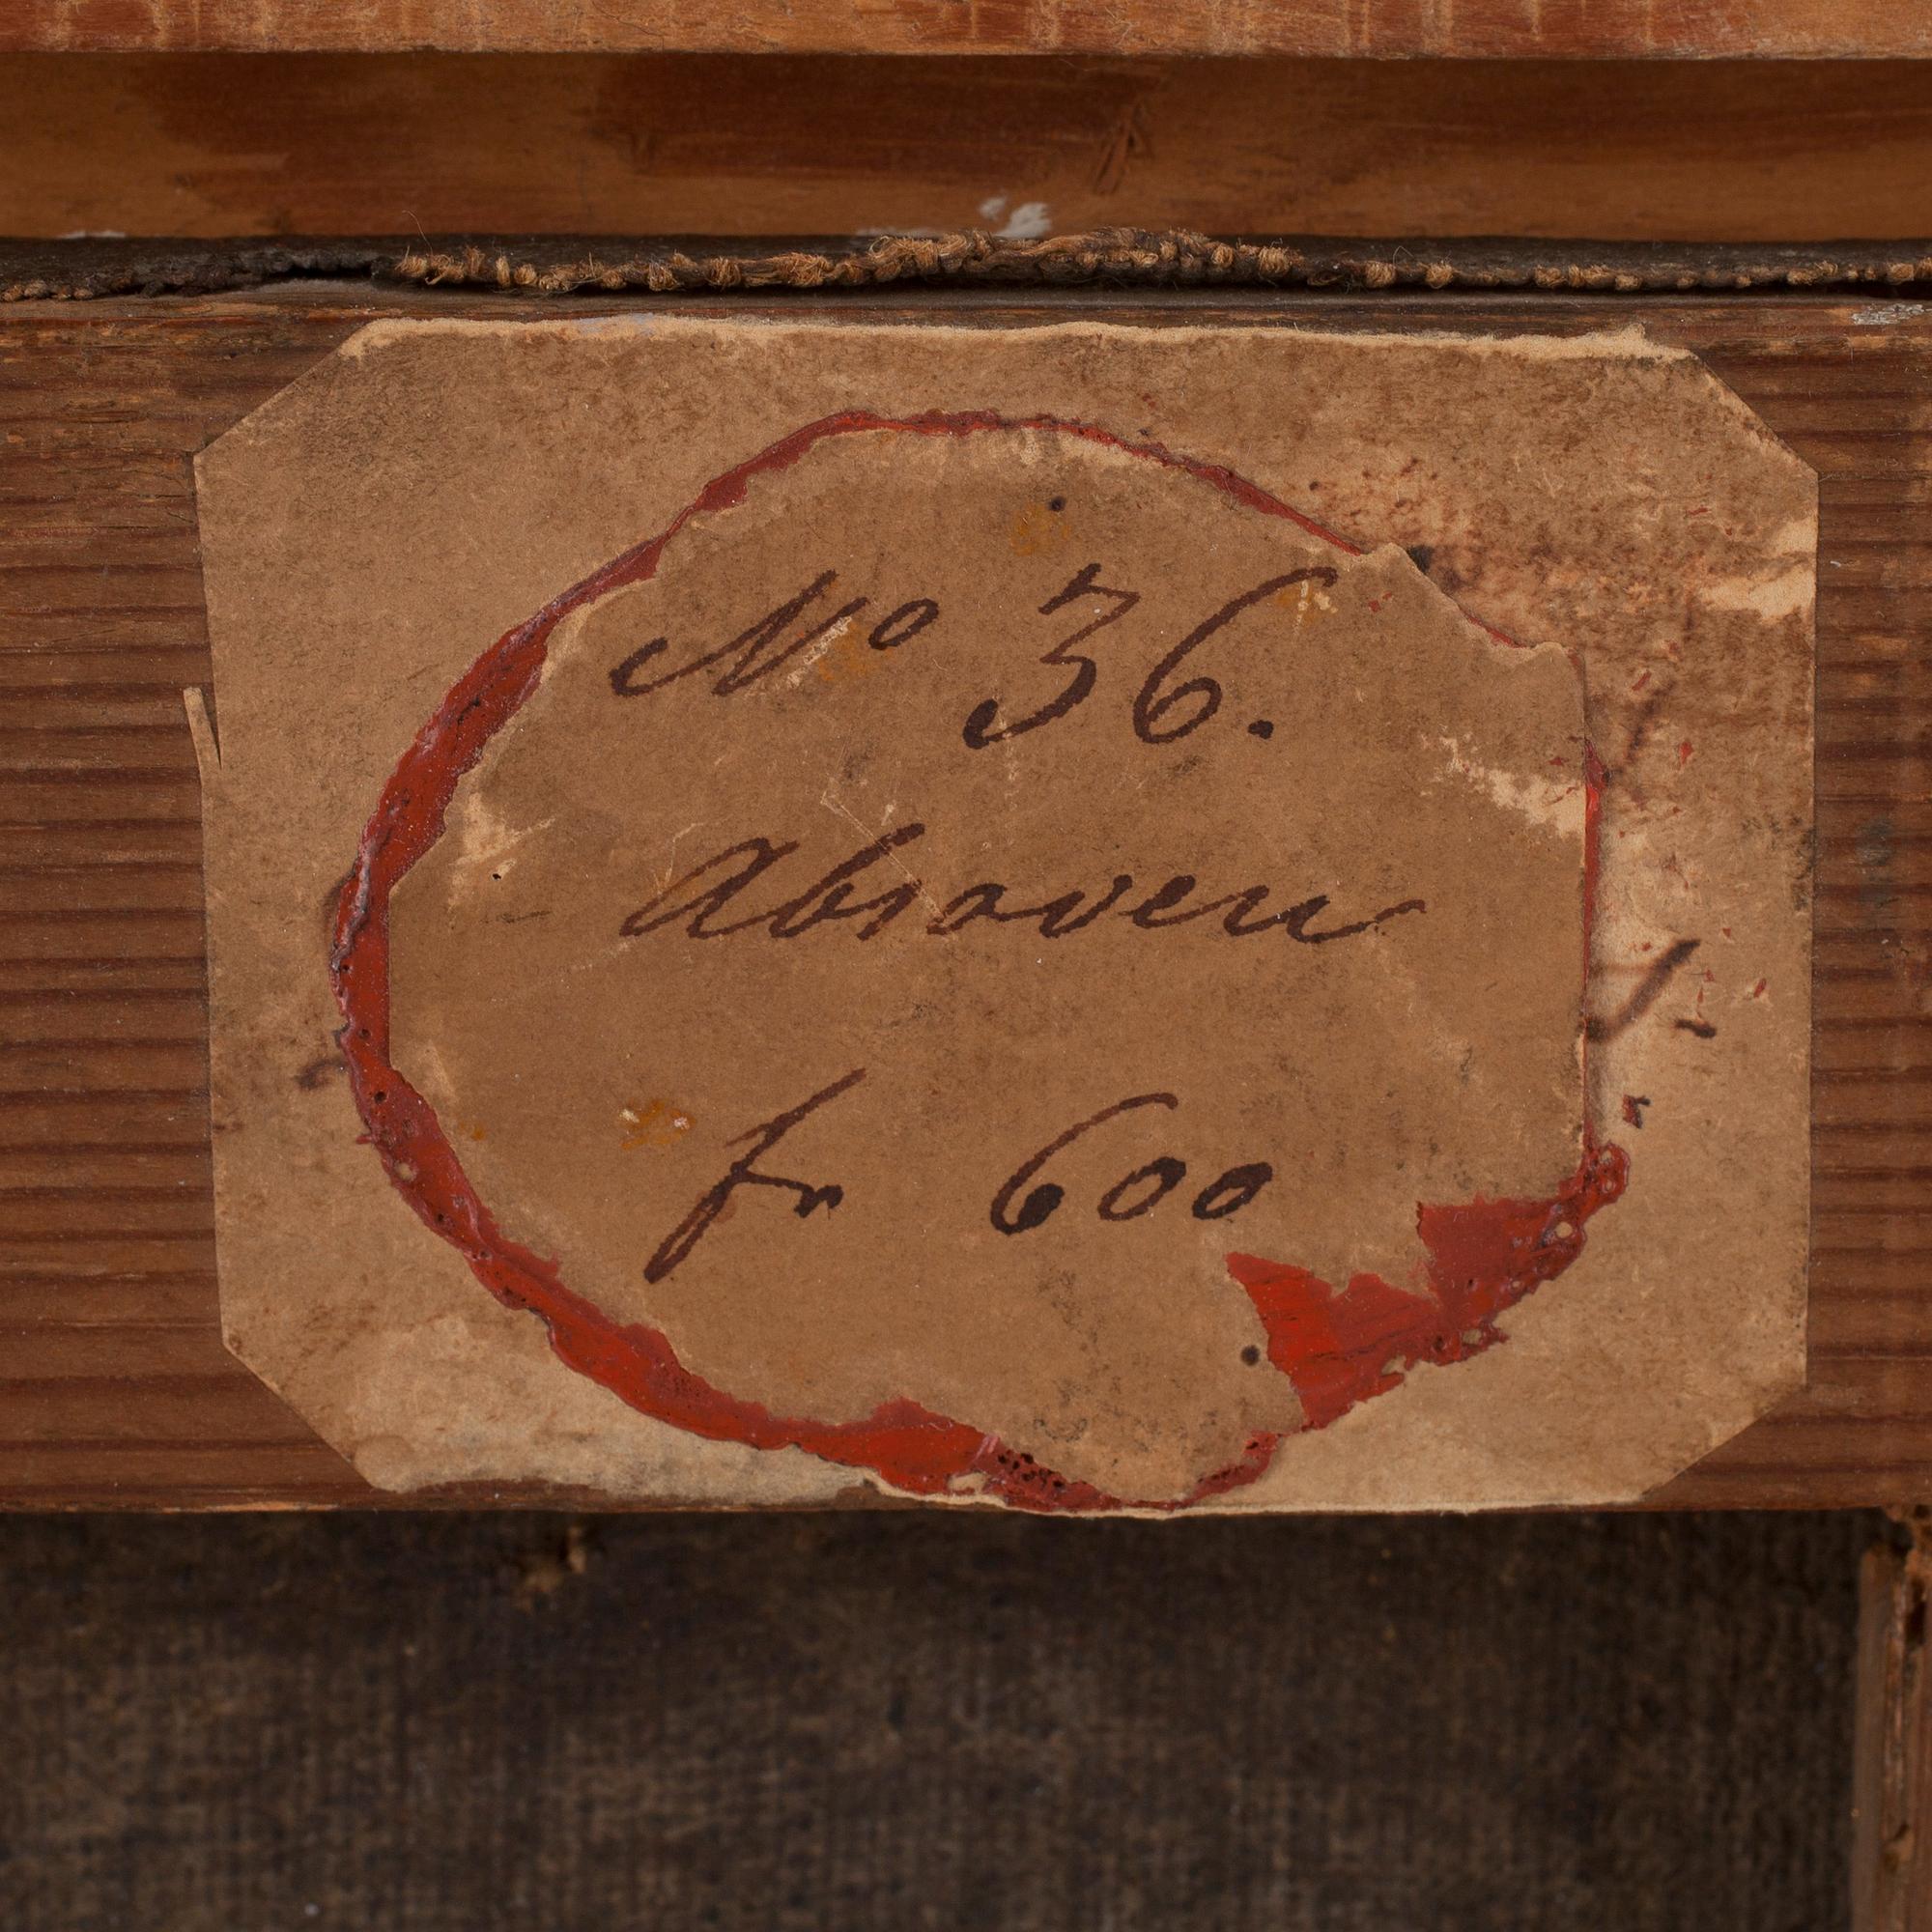 No 36.
Absoven
fr 600